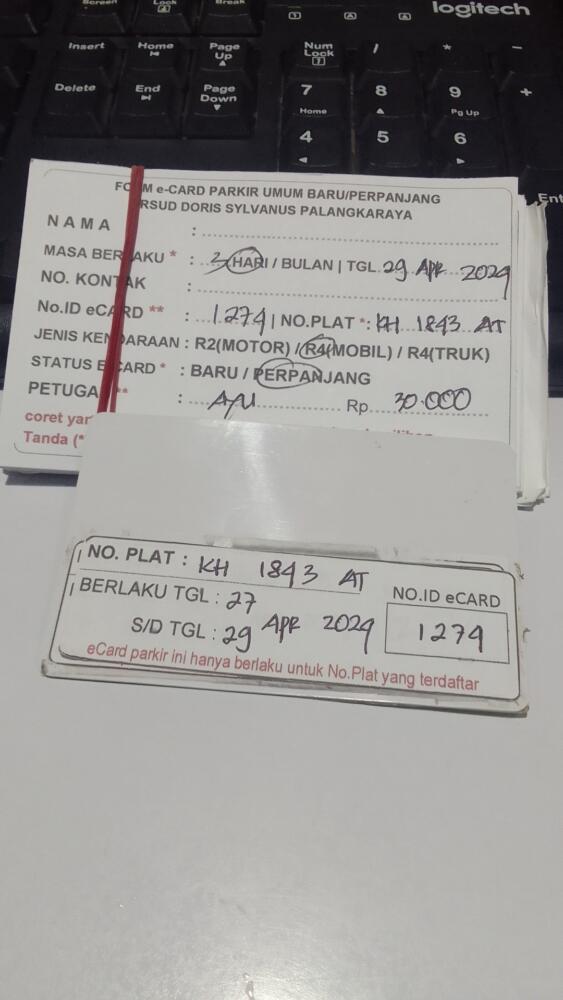 Screen
Lock
Break
logitech
Insert
Home
Page
Up
Num
Lock
/
*
-
Delete
End
Page
Down
7
Home
8
9
Pg Up
+
4
5
6
Ent
FORM e-CARD PARKIR UMUM BARU/PERPANJANG
RSUD DORIS SYLVANUS PALANGKARAYA
NAMA :
MASA BERLAKU * : 3 HARI / BULAN | TGL. 29 APR 2024
NO. KONTAK :
No.ID eCARD ** : 1274 | NO.PLAT *: KH 1843 AT
JENIS KENDARAAN : R2(MOTOR) / R4(MOBIL) / R4(TRUK)
STATUS ECARD * : BARU / PERPANJANG
PETUGAS ** : AYU Rp. 30.000
coret
Tanda (*
NO. PLAT : KH 1843 AT
BERLAKU TGL : 27
S/D TGL : 29 APR 2024
NO.ID eCARD
1274
eCard parkir ini hanya berlaku untuk No.Plat yang terdaftar